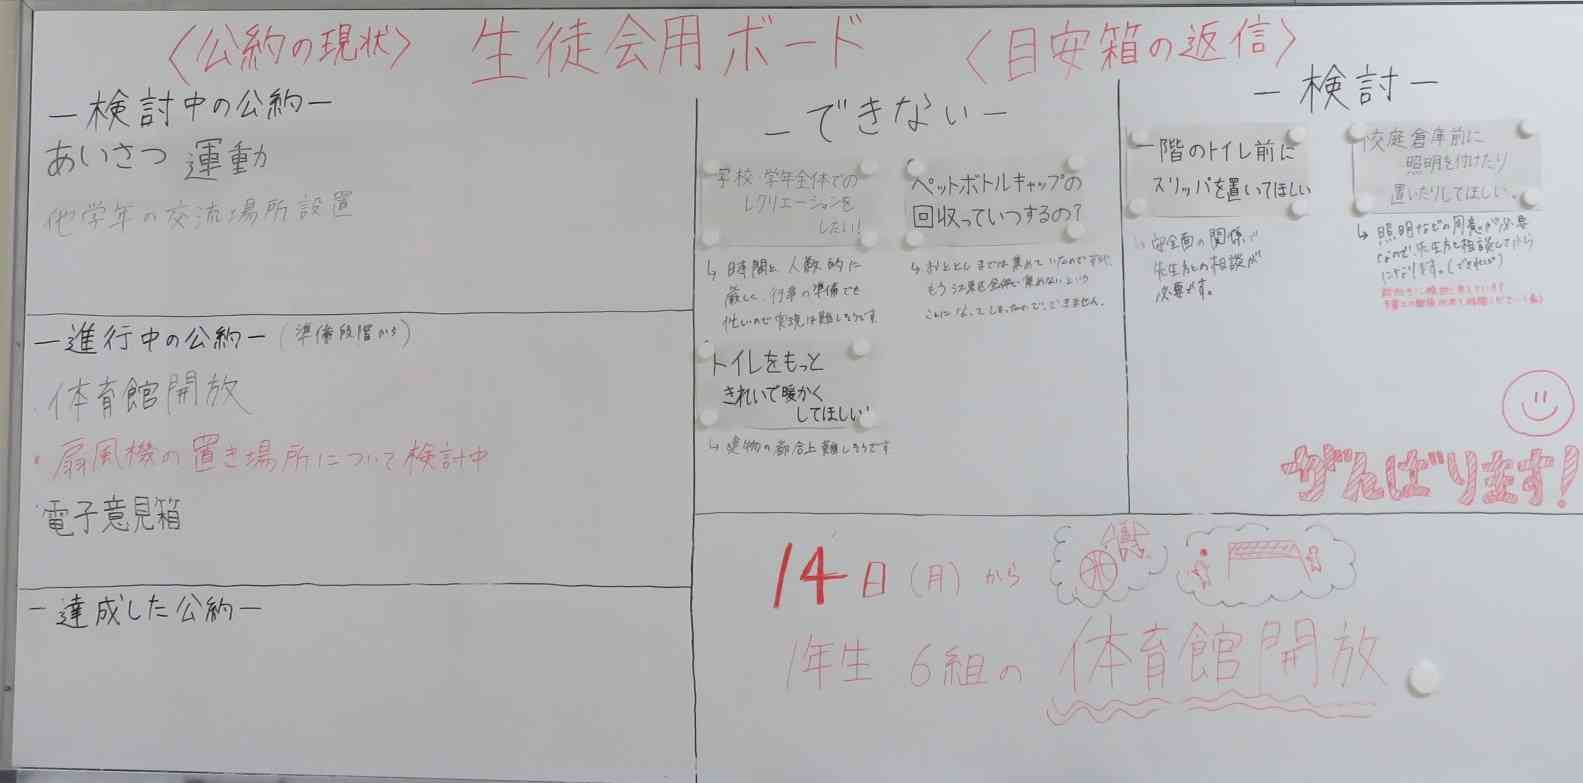 〈公約の現状〉 生徒会用ボード 〈目安箱の返信〉
ー検討中の公約ー
あいさつ 運動
他学年の交流場所設置
ー進行中の公約ー(準備段階から)
・体育館開放
・扇風機の置き場所について検討中
・電子意見箱
ー達成した公約ー
ーできないー
学校・学年全体での
レクリエーションを
したい!
↳ 時間と、人数的に
厳しく、行事の準備でも
忙しいので実現は難しそうです
ペットボトルキャップの
回収っていつするの?
↳ おととしまでは集めていたのですが、
もう
ことになってしまったので、できません。
トイレをもっと
きれいで暖かく
してほしい
↳ 建物の都合上難しそうです
ー検討ー
一階のトイレ前に
スリッパを置いてほしい
↳ 安全面の関係で
先生方との相談が
必要です。
校庭倉庫前に
照明を付けたり
置いたりしてほしい。
↳ 照明などの用意が必要
なので、先生方と相談してから
になります。(できれば)
がんばります!
14日(月)から
1年生 6組の 体育館開放